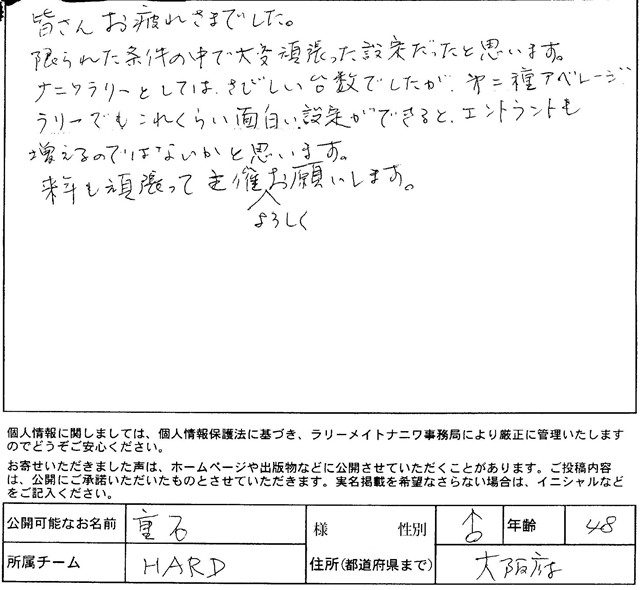 皆さんお疲れさまでした。
限られた条件の中で大変頑張った設定だったと思います。
ナニワラリーとしては、さびしい台数でしたが、第二種アベレージ
ラリーでもこれくらい面白い設定ができると、エントラントも
増えるのではないかと思います。
来年も頑張って主催お願いします。
よろしく
個人情報に関しましては、個人情報保護法に基づき、ラリーメイトナニワ事務局により厳正に管理いたします
のでどうぞご安心ください。
お寄せいただきました声は、ホームページや出版物などに公開させていただくことがあります。ご投稿内容
は、公開にご承諾いただいたものとさせていただきます。実名掲載を希望なさらない場合は、イニシャルなど
をご記入ください。
公開可能なお名前 重石 様 性別 ♂ 年齢 48
所属チーム HARD 住所(都道府県まで) 大阪府